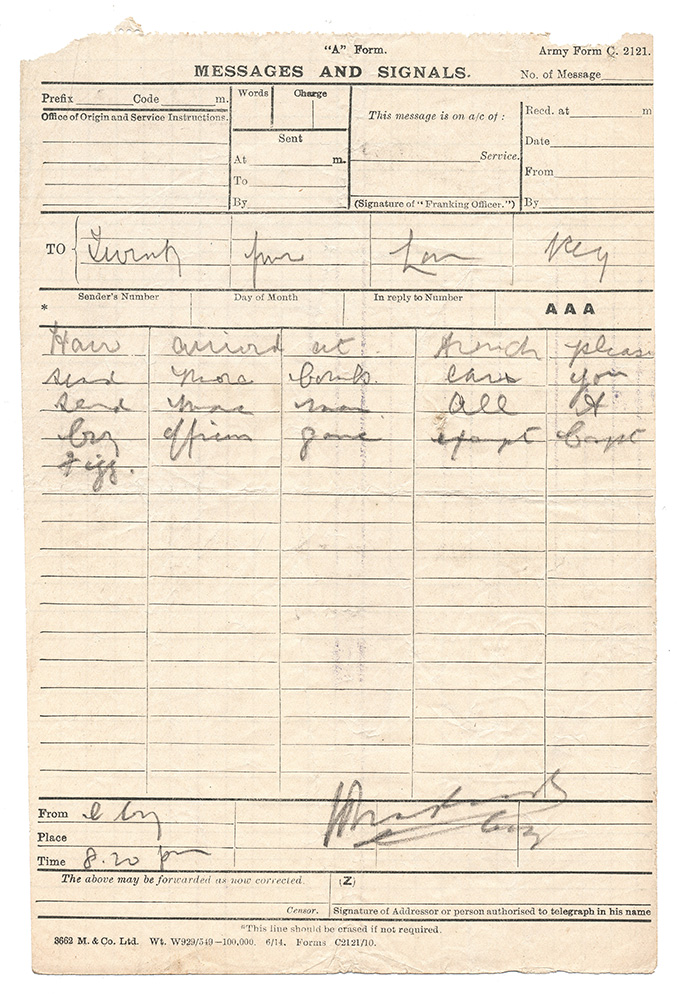 "A" Form.
Army Form C. 2121.
MESSAGES AND SIGNALS.
No. of Message
Prefix Code m.
Words Charge
This message is on a/c of :
Recd. at m
Office of Origin and Service Instructions.
Sent
Date
At m.
Service.
From
To
By
(Signature of "Franking Officer.")
By
TO
Sender's Number Day of Month In reply to Number
* A A A
Have arrived at trench please
send more bombs can you
send more men All A
Coy officers gone except Capt
Figg.
From C Coy
Place
Time 8.20 pm
Coy
The above may be forwarded as now corrected. (Z)
Censor. Signature of Addressor or person authorised to telegraph in his name
*This line should be erased if not required.
3662 M. & Co. Ltd. Wt. W929/549—100,000. 6/14. Forms C2121/10.